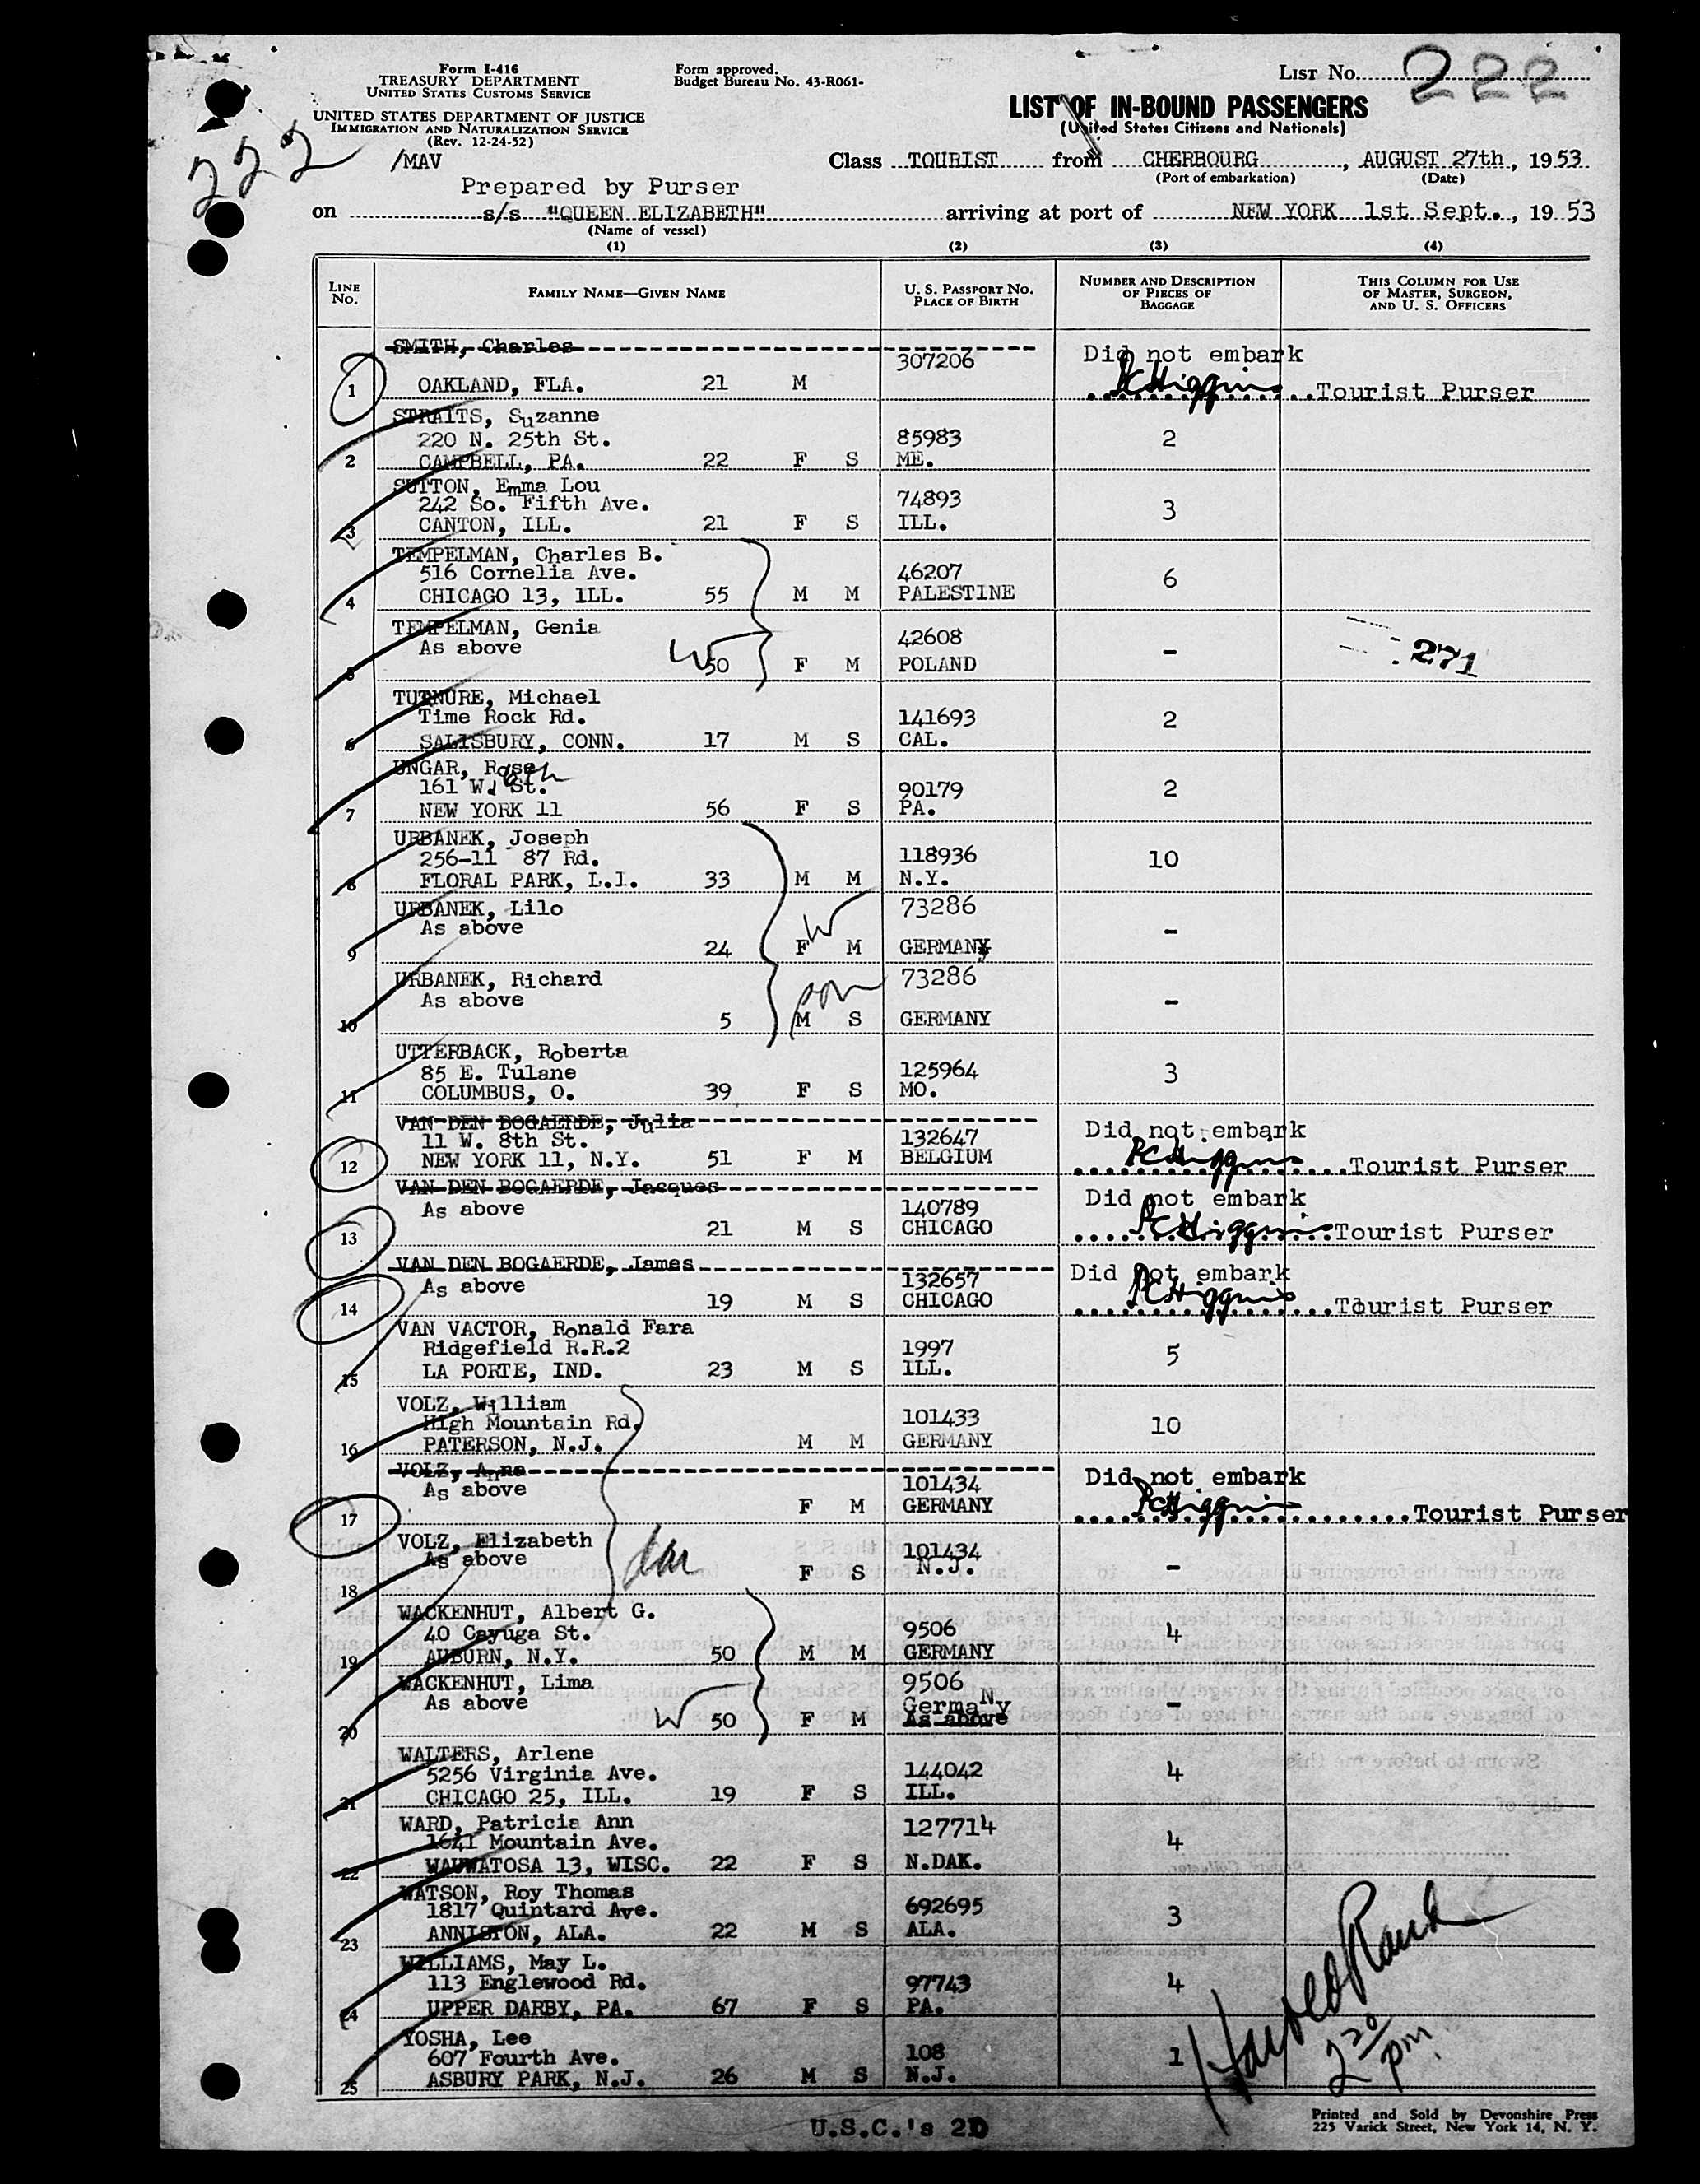 Form I-416
TREASURY DEPARTMENT
UNITED STATES CUSTOMS SERVICE
UNITED STATES DEPARTMENT OF JUSTICE
IMMIGRATION AND NATURALIZATION SERVICE
(Rev. 12-24-52)
Form approved.
Budget Bureau No. 43-R061-
LIST No. 222
LIST OF IN-BOUND PASSENGERS
(United States Citizens and Nationals)
222
/MAV
Class TOURIST from CHERBOURG, AUGUST 27th, 1953
(Port of embarkation) (Date)
Prepared by Purser
on s/s "QUEEN ELIZABETH" arriving at port of NEW YORK 1st Sept., 1953
(Name of vessel)
(1) (2) (3) (4)
LINE No. FAMILY NAME—GIVEN NAME U. S. PASSPORT NO. PLACE OF BIRTH NUMBER AND DESCRIPTION OF PIECES OF BAGGAGE THIS COLUMN FOR USE OF MASTER, SURGEON, AND U. S. OFFICERS
SMITH, Charles 307206 Did not embark
1 OAKLAND, FLA. 21 M PC Higgins Tourist Purser
STRAITS, Suzanne
220 N. 25th St. 85983 2
2 CAMPBELL, PA. 22 F S ME.
SUTTON, Emma Lou
242 So. Fifth Ave. 74893 3
3 CANTON, ILL. 21 F S ILL.
TEMPELMAN, Charles B.
516 Cornelia Ave. 46207 6
4 CHICAGO 13, ILL. 55 M M PALESTINE
TEMPELMAN, Genia
As above 42608 - 271
5 W 50 F M POLAND
TURNURE, Michael
Time Rock Rd. 141693 2
6 SALISBURY, CONN. 17 M S CAL.
UNGAR, Rose
161 W. 8th St. 90179 2
7 NEW YORK 11 56 F S PA.
URBANEK, Joseph
256-11 87 Rd. 118936 10
8 FLORAL PARK, L.I. 33 M M N.Y.
URBANEK, Lilo 73286
As above W -
9 24 F M GERMANY
URBANEK, Richard 73286
As above son -
10 5 M S GERMANY
UTTERBACK, Roberta
85 E. Tulane 125964 3
11 COLUMBUS, O. 39 F S MO.
VAN DEN BOGAERDE, Julia Did not embark
11 W. 8th St. 132647
12 NEW YORK 11, N.Y. 51 F M BELGIUM PC Higgins Tourist Purser
VAN DEN BOGAERDE, Jacques Did not embark
As above 140789
13 21 M S CHICAGO PC Higgins Tourist Purser
VAN DEN BOGAERDE, James Did not embark
As above 132657
14 19 M S CHICAGO PC Higgins Tourist Purser
VAN VACTOR, Ronald Fara
Ridgefield R.R.2 1997 5
15 LA PORTE, IND. 23 M S ILL.
VOLZ, William
High Mountain Rd. 101433 10
16 PATERSON, N.J. M M GERMANY
VOLZ, Anna Did not embark
As above 101434
17 F M GERMANY PC Higgins Tourist Purser
VOLZ, Elizabeth 101434
As above dau N.J. -
18 F S
WACKENHUT, Albert G.
40 Cayuga St. 9506 4
19 AUBURN, N.Y. 50 M M GERMANY
WACKENHUT, Lima 9506
As above GermaNy -
20 W 50 F M As above
WALTERS, Arlene
5256 Virginia Ave. 144042 4
21 CHICAGO 25, ILL. 19 F S ILL.
WARD, Patricia Ann 127714
1641 Mountain Ave. 4
22 WAUWATOSA 13, WISC. 22 F S N.DAK.
WATSON, Roy Thomas
1817 Quintard Ave. 692695 3
23 ANNISTON, ALA. 22 M S ALA.
WILLIAMS, May L.
113 Englewood Rd. 97743 4
24 UPPER DARBY, PA. 67 F S PA.
YOSHA, Lee
607 Fourth Ave. 108 1
25 ASBURY PARK, N.J. 26 M S N.J.
2 20/ pm
U.S.C.'s 20
Printed and Sold by Devonshire Press
225 Varick Street, New York 14, N. Y.